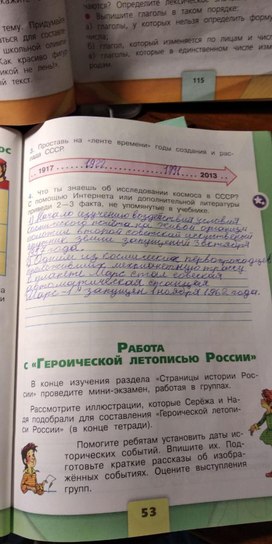 тему. Придумайте
школьной олим
Как красиво
микой не лень!».
ный текст.
чаются? Определите лексическое
Выпишите глаголы в таком порядке:
а) глаголы, у которых нельзя определить
б) глагол, который изменяется по лицам и
в) глаголы, которые в единственном числе
родам.
115
3. Проставь на «ленте времени» годы создания и рас-
пада СССР.
1917
1922
1991
2013
4. Что ты знаешь об исследовании космоса в СССР?
С помощью Интернета или дополнительной литературы
приведи 2—3 факта, не упомянутые в учебнике.
1) Начало изучению воздействия условий
космического полёта на живой организм
положил второй советский искусственный
спутник Земли запущенный 3 ноября
1957 года.
2) Одним из космических первопроходцев
проложивших межпланетную трассу
к планете Марс стала советская
автоматическая станция
Марс-1" запущен 1 ноября 1962 года.
РАБОТА
С «ГЕРОИЧЕСКОЙ ЛЕТОПИСЬЮ РОССИИ»
В конце изучения раздела «Страницы истории Рос-
сии» проведите мини-экзамен, работая в группах.
Рассмотрите иллюстрации, которые Серёжа и На-
дя подобрали для составления «Героической летопи-
си России» (в конце тетради).
Помогите ребятам установить даты ис-
торических событий. Впишите их. Под-
готовьте краткие рассказы об изобра-
жённых событиях. Оцените выступления
групп.
53